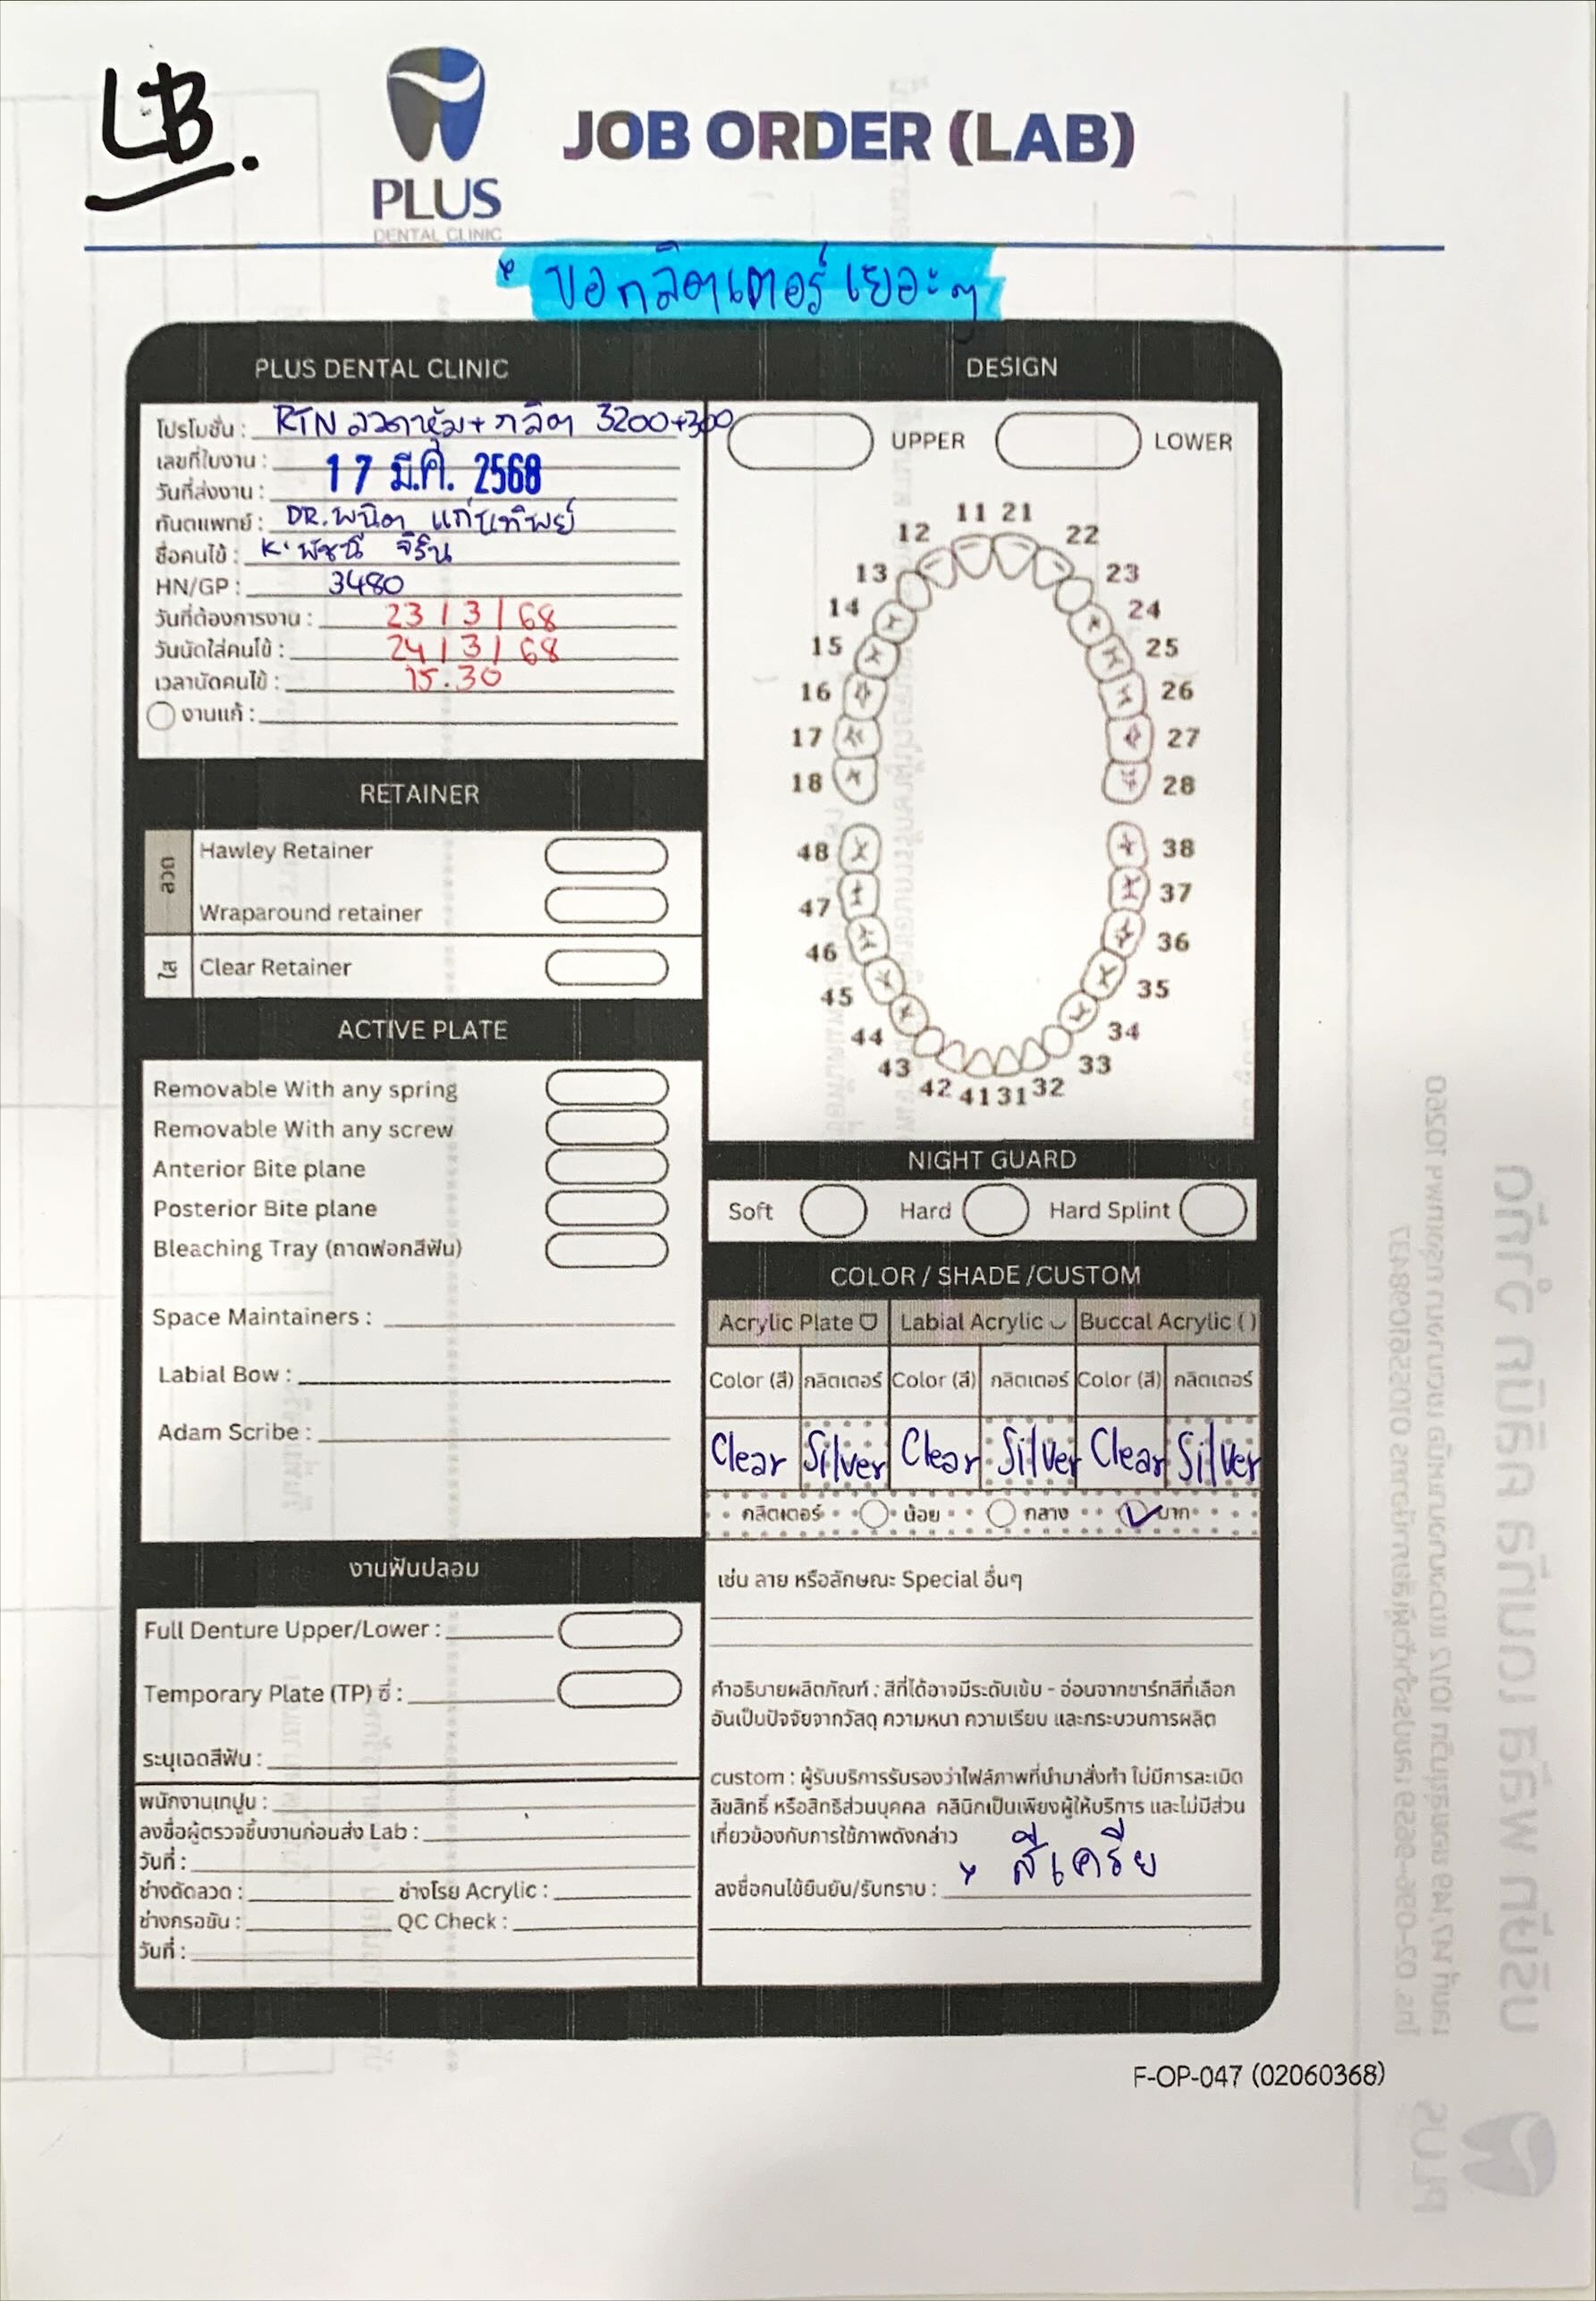 LB.
PLUS
DENTAL CLINIC
JOB ORDER (LAB)
* ขอกลิตเตอร์เยอะๆ
PLUS DENTAL CLINIC
โปรโมชั่น : RTN ลวดหุ้ม+กลิต 3200+300
เลขที่ใบงาน :
วันที่ส่งงาน : 17 มี.ค. 2568
ทันตแพทย์ : DR.พนิต แก่นทิพย์
ชื่อคนไข้ : K. พัชนี จิริน
HN/GP : 3480
วันที่ต้องการงาน : 23 / 3 / 68
วันนัดใส่คนไข้ : 24 / 3 / 68
เวลานัดคนไข้ : 15.30
งานแก้ :
RETAINER
ลวด
Hawley Retainer
Wraparound retainer
ใส
Clear Retainer
ACTIVE PLATE
Removable With any spring
Removable With any screw
Anterior Bite plane
Posterior Bite plane
Bleaching Tray (ถาดฟอกสีฟัน)
Space Maintainers :
Labial Bow :
Adam Scribe :
งานฟันปลอม
Full Denture Upper/Lower :
Temporary Plate (TP) ซี่ :
ระบุเฉดสีฟัน :
พนักงานเทปูน :
ลงชื่อผู้ตรวจชิ้นงานก่อนส่ง Lab :
วันที่ :
ช่างดัดลวด : ช่างโรย Acrylic :
ช่างกรอขัน : QC Check :
วันที่ :
DESIGN
UPPER LOWER
11 21
12 22
13 23
14 24
15 25
16 26
17 27
18 28
48 38
47 37
46 36
45 35
44 34
43 33
42 41 31 32
NIGHT GUARD
Soft Hard Hard Splint
COLOR / SHADE /CUSTOM
Acrylic Plate Labial Acrylic Buccal Acrylic ( )
Color (สี) กลิตเตอร์ Color (สี) กลิตเตอร์ Color (สี) กลิตเตอร์
Clear Silver Clear Silver Clear Silver
กลิตเตอร์ น้อย กลาง มาก
เช่น ลาย หรือลักษณะ Special อื่นๆ
คำอธิบายผลิตภัณฑ์ : สีที่ได้อาจมีระดับเข้ม - อ่อนจากชาร์ทสีที่เลือก
อันเป็นปัจจัยจากวัสดุ ความหนา ความเรียบ และกระบวนการผลิต
custom : ผู้รับบริการรับรองว่าไฟล์ภาพที่นำมาสั่งทำ ไม่มีการละเมิด
ลิขสิทธิ์ หรือสิทธิส่วนบุคคล คลินิกเป็นเพียงผู้ให้บริการ และไม่มีส่วน
เกี่ยวข้องกับการใช้ภาพดังกล่าว
ลงชื่อคนไข้ยืนยัน/รับทราบ : × สีเครีย
F-OP-047 (02060368)